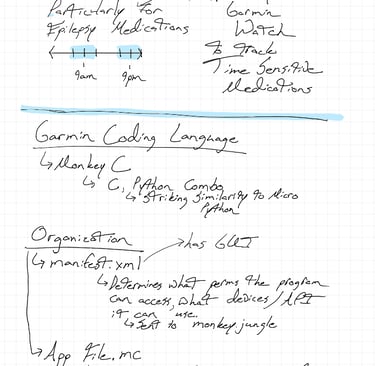 Particularly For
Epilepsy Medications
9am 9pm
Garmin
Watch
To Track
Time Sensitive
Medications
Garmin Coding Language
↳ Monkey C
↳ C, Python Combo
↳ Striking Similarity to Micro
Python
Organization
↳ manifest.xml → has GUI
↳ Determines what perms the program
can access, what devices/API
it can use.
↳ Sent to monkey.jungle
↳ App File.mc